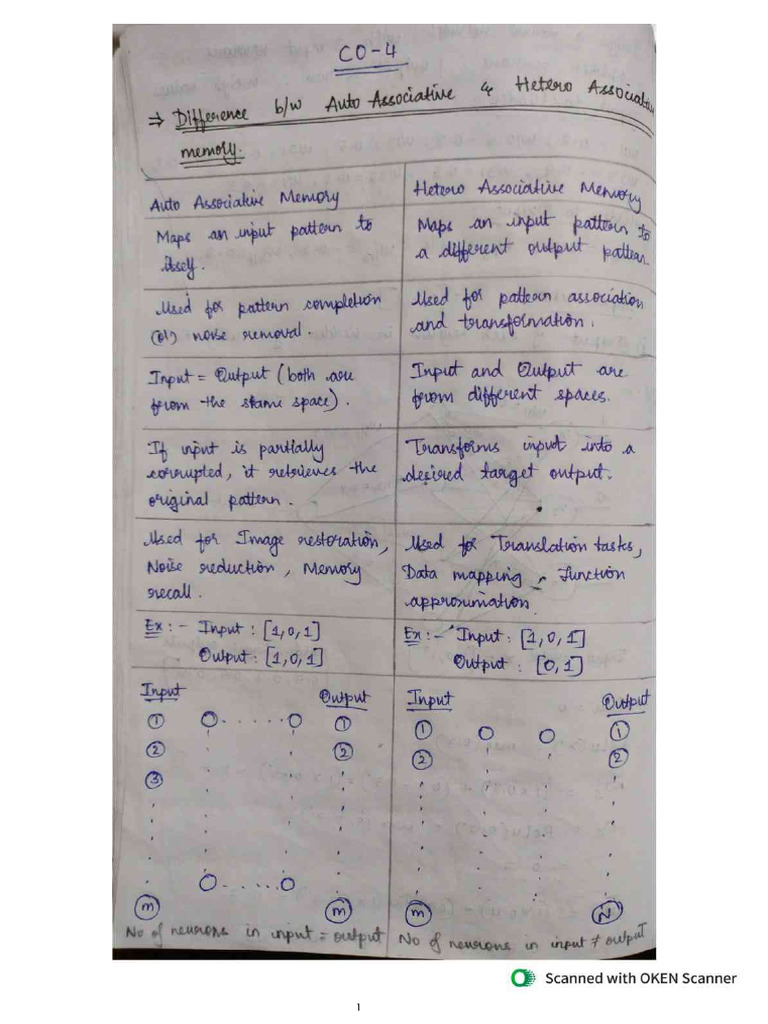 CO-4
⇒ Difference b/w Auto Associative & Hetero Associative
memory.
Auto Associative Memory
Maps an input pattern to
itself.
Used for pattern completion
(or) noise removal.
Input = Output (both are
from the same space).
If input is partially
corrupted, it retrieves the
original pattern.
Used for Image restoration,
Noise reduction, Memory
recall.
Ex :- Input : [1,0,1]
Output : [1,0,1]
Input Output
1 1
2 2
3
m m
No of neurons in input = output
Hetero Associative Memory
Maps an input pattern to
a different output pattern.
Used for pattern association
and transformation.
Input and Output are
from different spaces.
Transforms input into a
desired target output.
Used for Translation tasks,
Data mapping, Function
approximation.
Ex :- Input : [1,0,1]
Output : [0,1]
Input Output
1 1
2 2
m N
No of neurons in input ≠ output
Scanned with OKEN Scanner
1